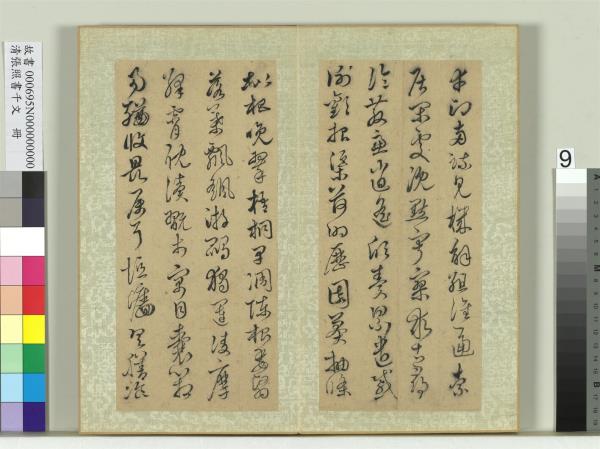 故書 000695N000000000
清張照書千文 冊
9
幸即兩疏見機解組誰逼索
居閑處沈默寂寥求古尋
論散慮逍遙欣奏累遣慼
謝歡招渠荷的歷園莽抽條
枇杷晚翠梧桐早凋陳根委翳
落葉飄颻游鵾獨運凌摩
絳霄耽讀翫市寓目囊箱
易輶攸畏屬耳垣牆具膳飡